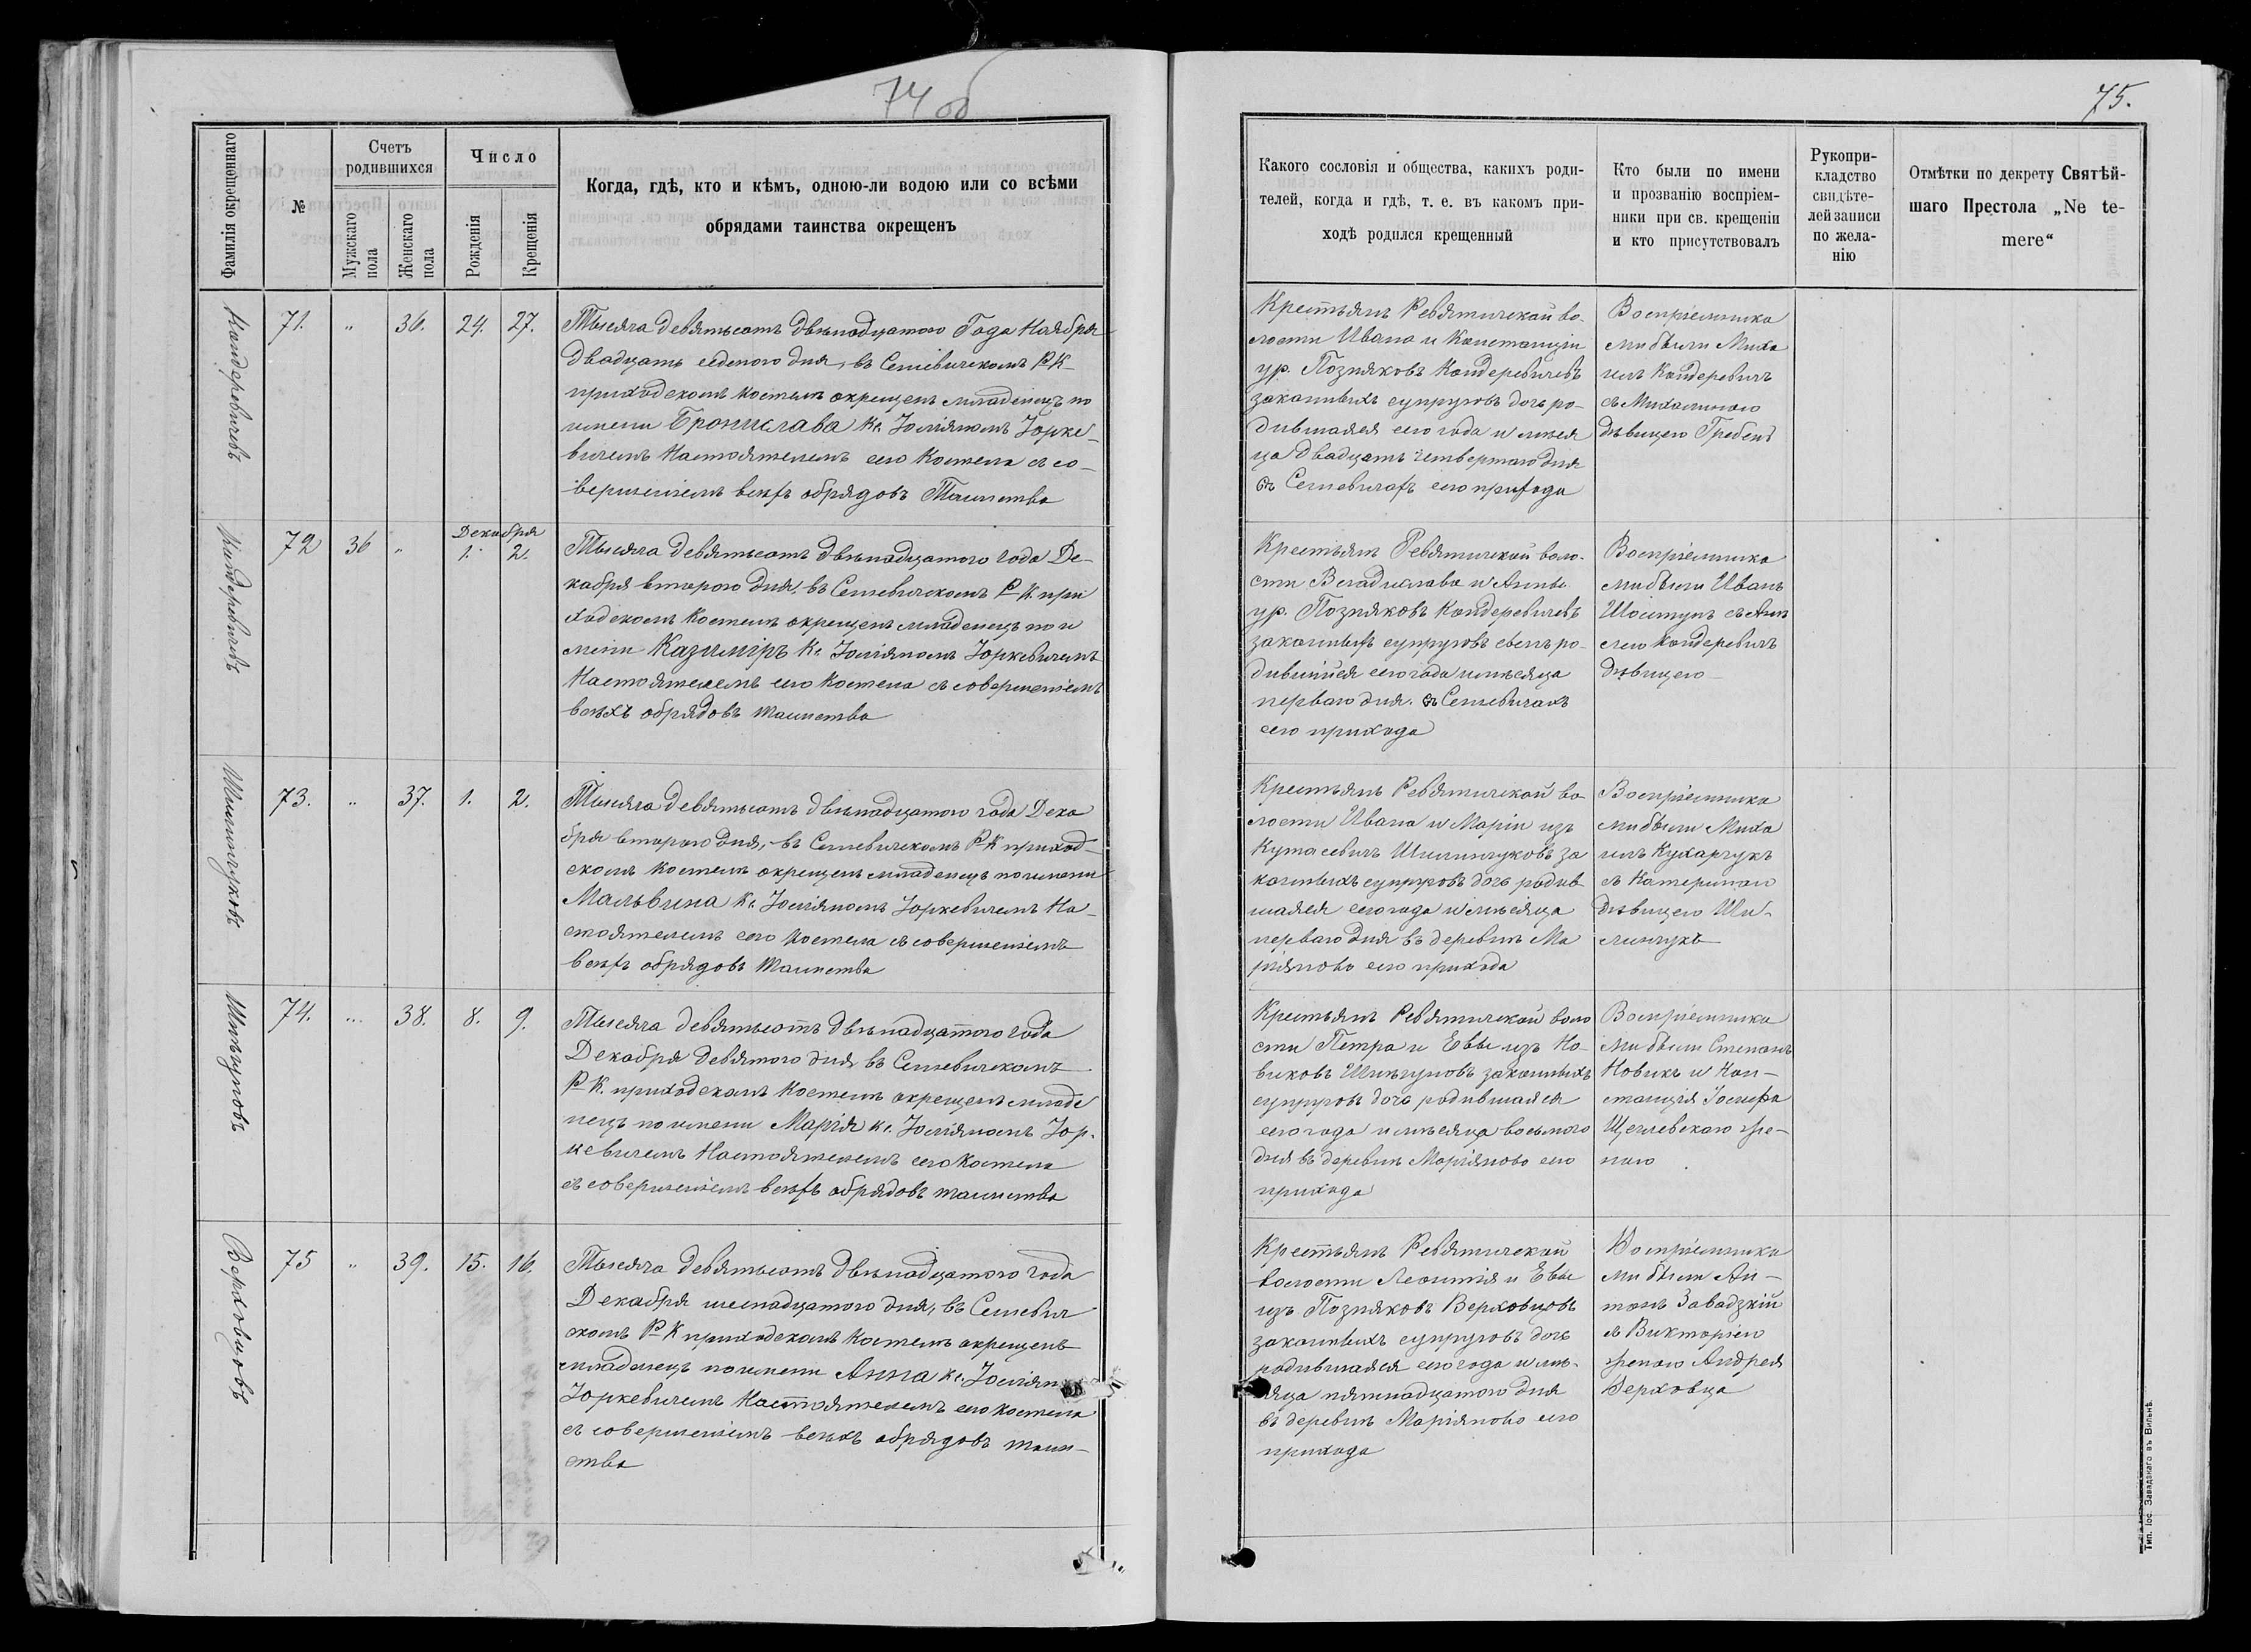 74 об
75.
Фамилія окрещеннаго
№
Счетъ родившихся
Мужскаго пола
Женскаго пола
Число
Рожденія
Крещенія
Когда, гдѣ, кто и кѣмъ, одною-ли водою или со всѣми
обрядами таинства окрещенъ
Какого сословія и общества, какихъ роди-
телей, когда и гдѣ, т. е. въ какомъ при-
ходѣ родился крещенный
Кто были по имени
и прозванію воспріем-
ники при св. крещеніи
и кто присутствовалъ
Рукопри-
кладство
свидѣте-
лей записи
по жела-
нію
Отмѣтки по декрету Святѣй-
шаго Престола „Ne te-
mere“
Кондеревичевъ
71. " 36. 24. 27.
Тысяча девятьсотъ двѣнадцатого Года Ноября
двадцать седьмого дня, въ Сегневичскомъ Р-К
приходскомъ костелѣ окрещенъ младенецъ по
имени Бронислава Кс. Юліяномъ Юрке-
вичемъ Настоятелемъ сего Костела съ со-
вершеніемъ всѣхъ обрядовъ Таинства
Крестьянъ Ревятичской во-
лости Ивана и Констанціи
ур. Позняковъ Кондеревичевъ
законныхъ супруговъ дочь ро-
дившаяся сего года и меся
ца двадцать четвертого дня
въ Сегневичахъ сего прихода
Воспріемника
ми были Миха
илъ Кондеревичъ
съ Михалиною
дѣвицею Гребень
Кондеревичевъ
72 36 "
Декабря
1. 2.
Тысяча девятьсотъ двѣнадцатого года Де-
кабря второго дня, въ Сегневичскомъ Р-К при
ходскомъ Костелѣ окрещенъ младенецъ по и
мени Казиміръ Кс. Юліяномъ Юркевичемъ
Настоятелемъ сего Костела съ совершеніемъ
всѣхъ обрядовъ таинства
Крестьянъ Ревятичской воло-
сти Владислава и Анны
ур. Позняковъ Кондеревичевъ
законныхъ супруговъ сынъ ро-
дившійся сего года и мѣсяца
перваго дня въ Сегневичахъ
сего прихода
Воспріемника
ми были Иванъ
съ Анъ
ею Кондеревичъ
дѣвицею
Шилинчуковъ
73. " 37. 1. 2.
Тысяча девятьсотъ двѣнадцатого года Дека
бря второго дня, въ Сегневичскомъ Р-К приход-
скомъ Костелѣ окрещенъ младенецъ по имени
Мальвина Кс. Юліяномъ Юркевичемъ На-
стоятелемъ сего Костела съ совершеніемъ
всѣхъ обрядовъ таинства
Крестьянъ Ревятичской во
лости Ивана и Маріи изъ
Шилинчуковъ за
конныхъ супруговъ дочь родив
шаяся сего года и мѣсяца
перваго дня въ деревнѣ Ма
ріяново сего прихода
Воспріемника
ми были Миха
илъ Кухарчукъ
съ Катериною
дѣвицею Ши-
линчукъ
74. " 38. 8. 9.
Тысяча девятьсотъ двѣнадцатого года
Декабря девятого дня въ Сегневичскомъ
Р-К. приходскомъ Костелѣ окрещенъ младе
нецъ по имени Марія Кс. Юліяномъ Юр-
кевичемъ Настоятелемъ сего Костела
съ совершеніемъ всѣхъ обрядовъ таинства
Крестьянъ Ревятичской воло
сти Петра и Евы изъ Но-
виковъ законныхъ
супруговъ дочь родившаяся
сего года и мѣсяца восьмого
дня въ деревнѣ Маріяново сего
прихода
Воспріемника
ми были Степанъ
Новикъ и Кон-
станція Іосифа
Щеглевскаго же-
ною
Верховцовъ
75 " 39. 15. 16.
Тысяча девятьсотъ двѣнадцатого года
Декабря шеснадцатого дня, въ Сегневич
скомъ Р-К приходскомъ Костелѣ окрещенъ
младенецъ по имени Анна Кс. Юліяномъ
Юркевичемъ Настоятелемъ сего Костела
съ совершеніемъ всѣхъ обрядовъ таин-
ства
Крестьянъ Ревятичской
волости Леонтія и Евы
изъ Позняковъ Верховцовъ
законныхъ супруговъ дочь
родившаяся сего года и мѣ-
сяца пятнадцатого дня
въ деревнѣ Маріяново сего
прихода
Воспріемника
ми были Ан-
тонъ Завадзкій
съ Викторіею
женою Андрея
Верховца
Тип. Іос. Завадзкаго въ Вильнѣ.